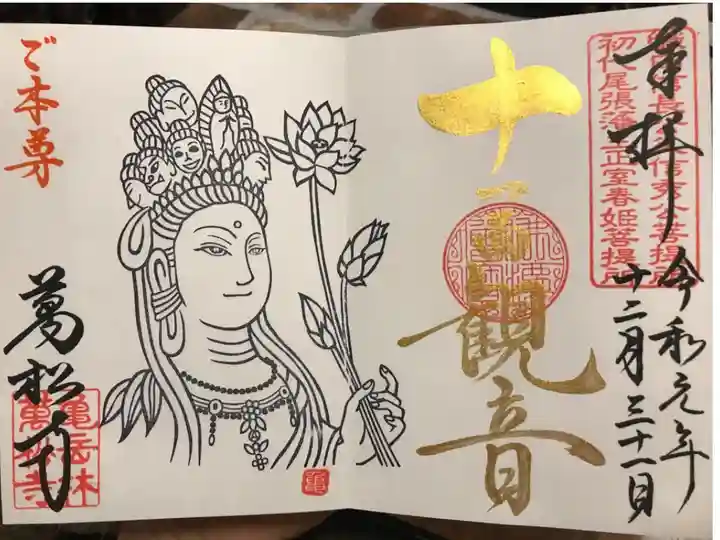 奉拝
令和元年
十二月三十一日
初代尾張藩正室春姫菩提所
十一面観音
ご本尊
萬松寺
亀岳林
萬松寺
亀